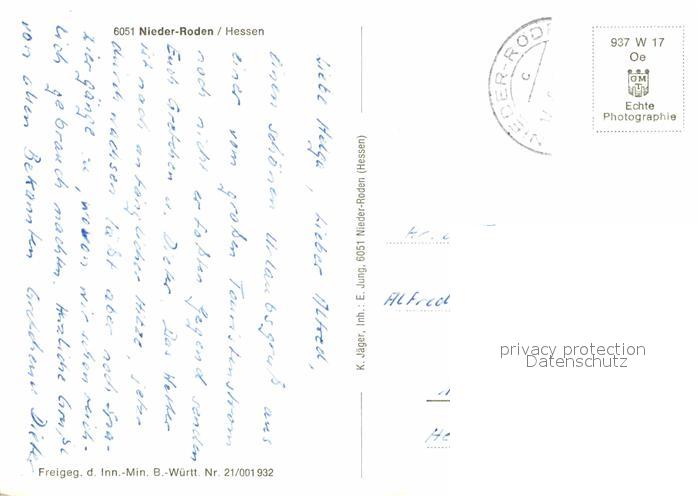 6051 Nieder-Roden / Hessen
Liebe Helga, lieber Alfred,
einen schönen Urlaubsgruß aus
einer vom großen Touristenstrom
noch nicht erfaßten Gegend senden
Euch Gretchen u. Dieter. Das Wetter
ist nach anfänglicher Hitze, jetzt
durchwachsen läßt aber noch Spa-
ziergänge zu, wovon wir schon reich-
lich gebrauch machten. Herzliche Grüße
von alten Bekannten Gretchen u Dieter
Freigeg. d. Inn.-Min. B.-Württ. Nr. 21/001932
K. Jäger, Inh.: E. Jung, 6051 Nieder-Roden (Hessen)
NIEDER-ROD
c
937 W 17
Oe
GM
Echte
Photographie
Alfred
He
privacy protection
Datenschutz